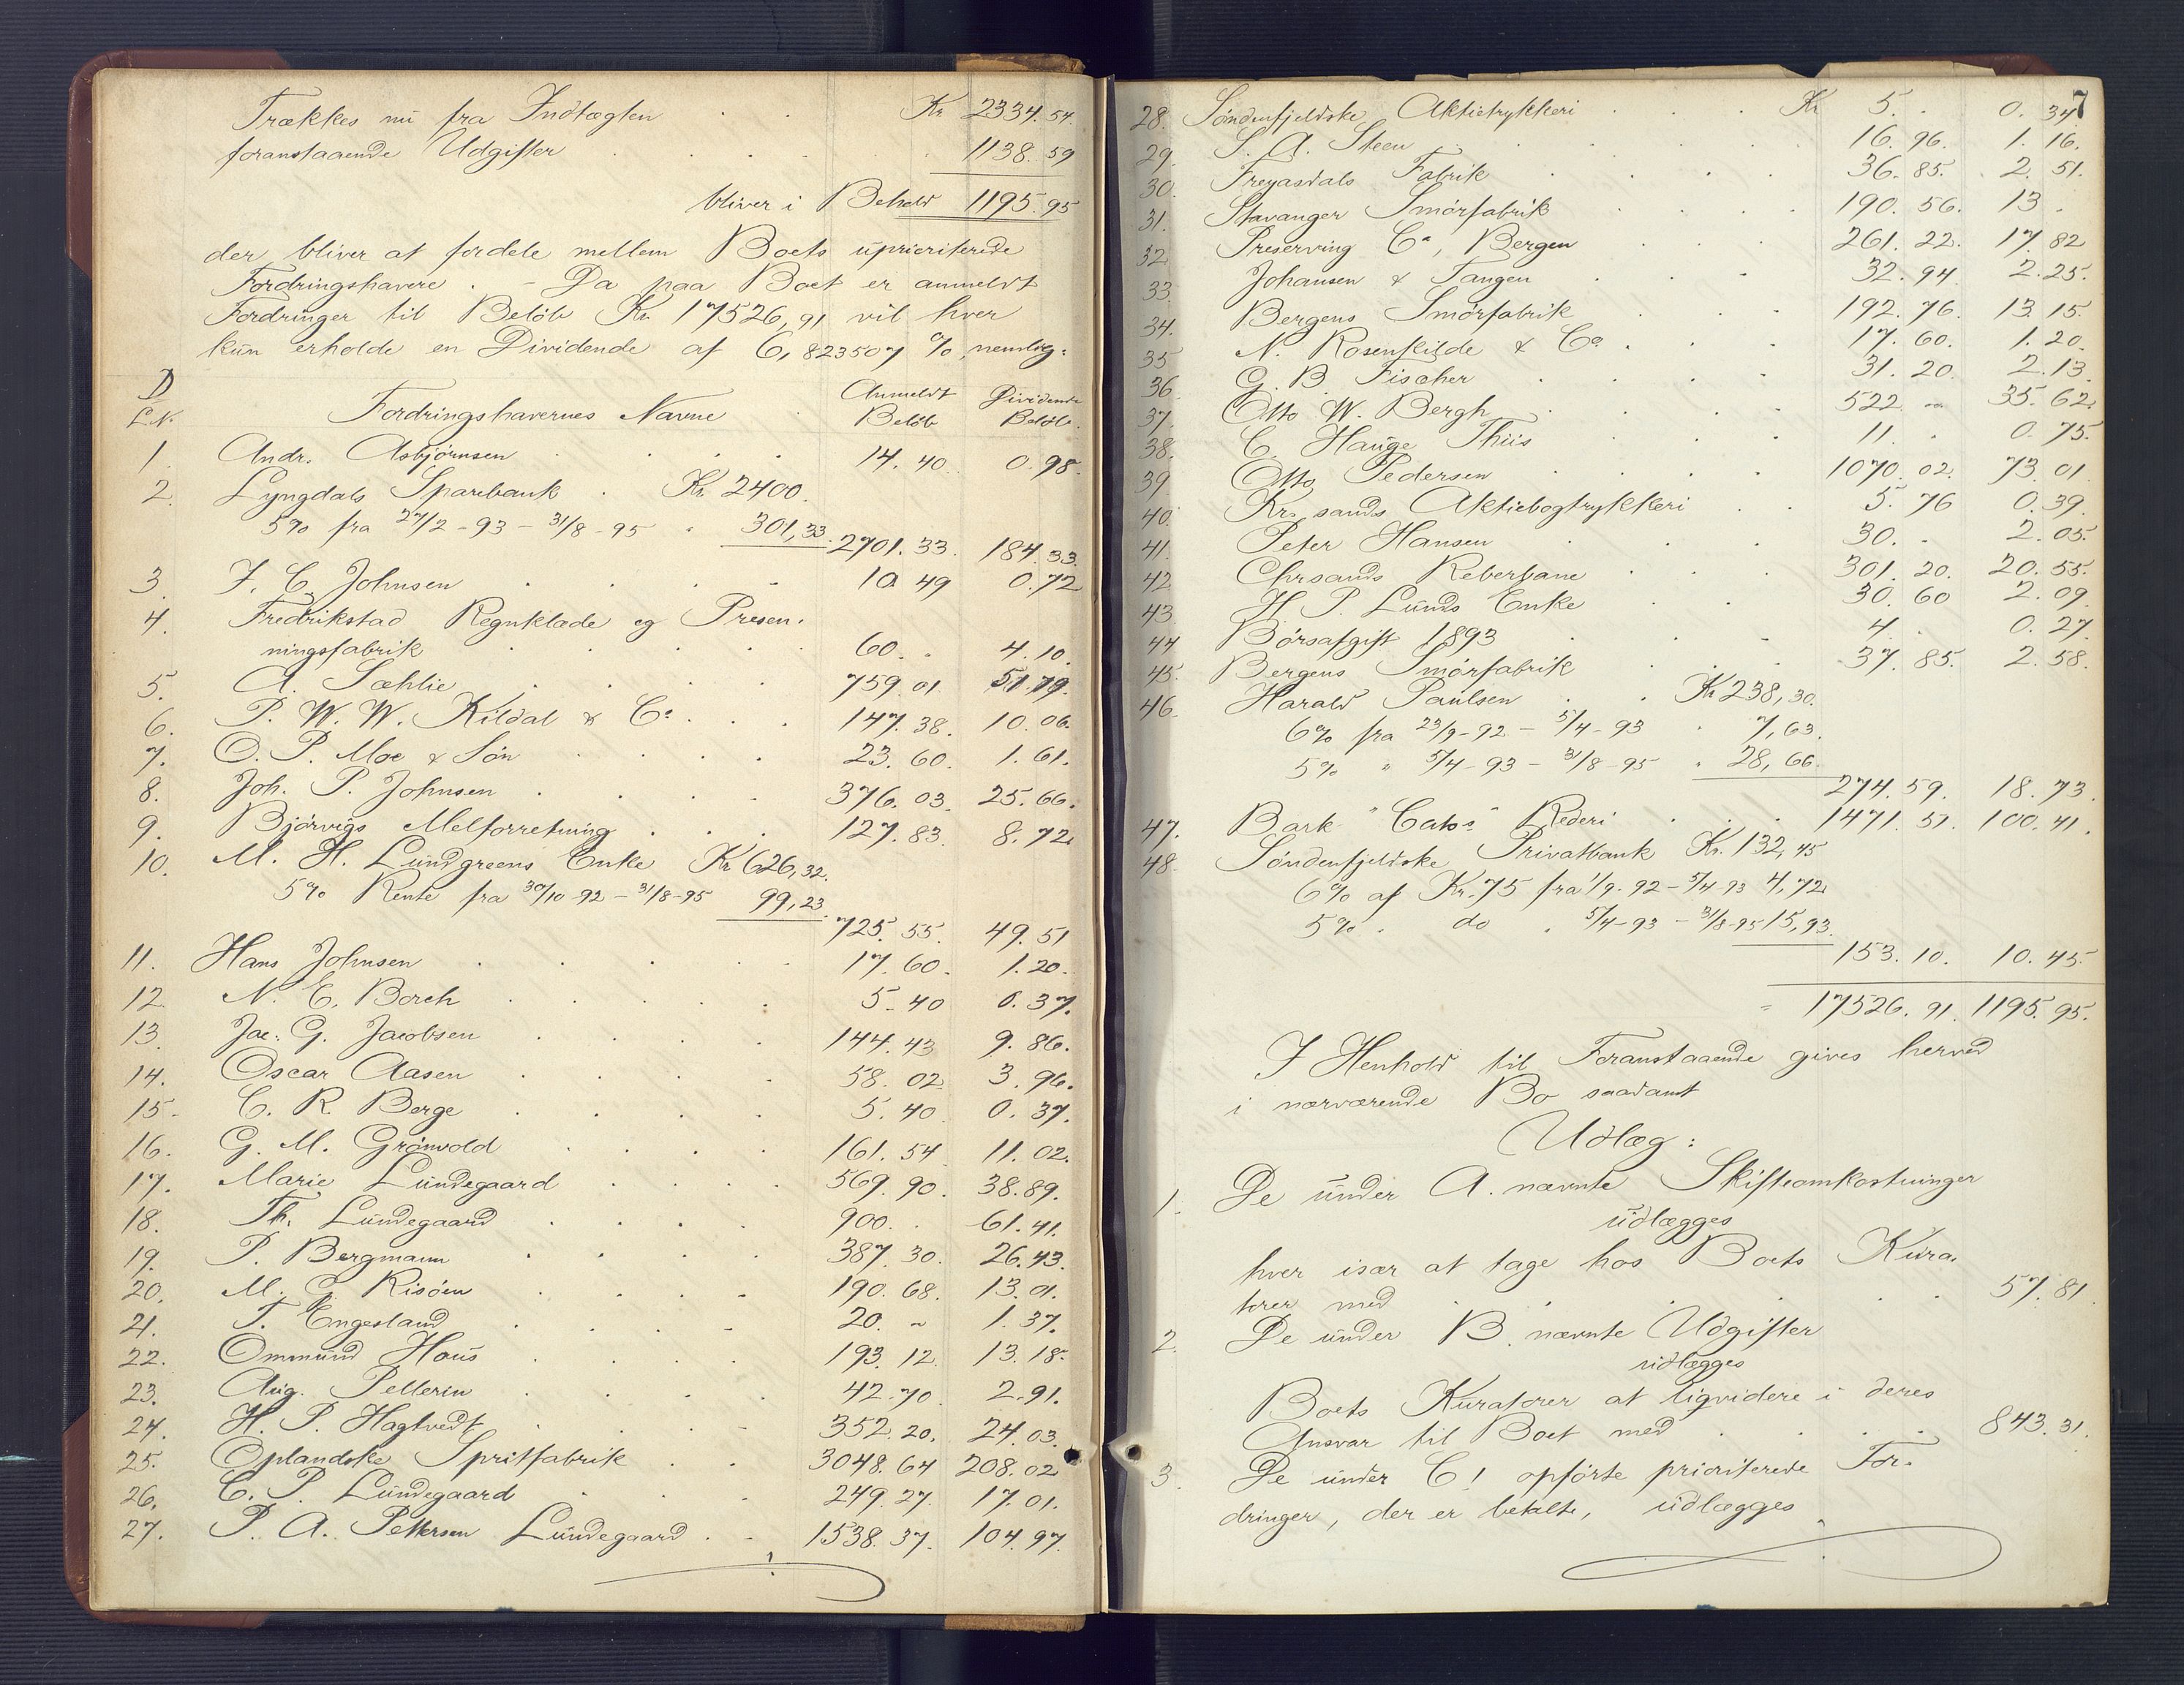 Trækkes nu fra Indtægten . . Kr 2334.54.
foranstaaende Udgifter . . . . 1138.59
bliver i Behold 1195.95
der bliver at fordele mellem Boets uprioriterede
Fordringshavere. – Da paa Boet er anmeldt
Fordringer til Beløb Kr. 17526,91 vil hver
kun erholde en Dividende af 6,823507 %, nemlig:
D
L.N. Fordringshavernes Navne Anmeldt Beløb Dividende Beløb.
1. Andr. Asbjørnsen . . . . 14.40. 0.98.
2. Lyngdals Sparebank . Kr. 2400.
5% fra 27/2-93 – 31/8-95 " 301,33. 2701.33. 184.33.
3. J. C. Johnsen . . . . 10.49 0.72
4. Fredrikstad Regnklæde og Presen-
ningsfabrik . . . . 60. " 4.10.
5. A. Sæhlie . . . . 759.01 51.79.
6. P. W. W. Kildal & Co. . . . 147.38. 10.06.
7. O. P. Moe & Søn . . . . 23.60. 1.61.
8. Joh. P. Johnsen . . . . 376.03. 25.66.
9. Bjørvigs Melforretning . . . 127.83. 8.72.
10. M. H. Lundgreens Enke Kr 626,32.
5% Rente fra 30/10-92 – 31/8-95 99,23.
725.55. 49.51
11. Hans Johnsen . . . . 17.60. 1.20.
12. N. E. Borch . . . . 5.40 0.37.
13. Jac. G. Jacobsen . . . . 144.43 9.86.
14. Oscar Aasen . . . . 58.02 3.96.
15. C. R. Berge . . . . 5.40 0.37.
16. G. M. Grönvold . . . . 161.54 11.02.
17. Marie Lundegaard . . . . 569.90. 38.89.
18. Th. Lundegaard . . . . 900. . 61.41.
19. P. Bergmann . . . . 387.30. 26.43.
20. M. C. Risøen . . . . 190.68. 13.01.
21. T. Engesland . . . . 20. " 1.37.
22. Ommund Haus . . . . 193.12. 13.18.
23. Aug. Pellerin . . . . 42.70 2.91.
24. H. P. Hagtvedt . . . . 352.20. 24.03.
25. Oplandske Spritfabrik . . 3048.64 208.02
26. C. P. Lundegaard . . . 249.27. 17.01.
27. P. A. Pettersen Lundegaard . . 1538.37. 104.97.
7
28. Søndenfjeldske Aktietrykkeri . . . Kr 5. . 0.34
29. S. A. Steen . . . . 16.96. 1.16.
30. Freyasdals Fabrik . . . . 36.85. 2.51.
31. Stavanger Smörfabrik . . . 190.56. 13 .
32. Preserving Co, Bergen . . . 261.22. 17.82
33. Johansen & Tangen . . . 32.94. 2.25.
34. Bergens Smörfabrik . . . 192.76. 13.15.
35. N. Rosenkilde & Co. . . . 17.60. 1.20.
36. G. B. Fischer . . . . 31.20. 2.13.
37. Otto W. Bergh . . . . 522. " 35.62.
38. C. Hauge Thiis . . . . 11. . 0.75.
39. Otto Pedersen . . . . 1070.02. 73.01.
40. Kr.sands Aktiebogtrykkeri . . 5.76 0.39.
41. Peter Hansen . . . 30. . 2.05.
42. Chrsands Reberbane . . . 301.20. 20.55.
43. H. P. Lunds Enke . . 30.60 2.09.
44. Börsafgift 1893 . . . 4. . 0.27.
45. Bergens Smörfabrik . . . 37.85. 2.58.
46. Harald Paulsen . . Kr 238,30.
6% fra 23/9-92 – 5/4-93 " 7,63.
5% " 5/4-93 – 31/8-95 " 28,66.
274.59. 18.73.
47. Bark "Cato's" Rederi . . . 1471.51. 100.41.
48. Søndenfjeldske Privatbank Kr. 132,45
6% af Kr. 75 fra 1/9-92 – 5/4-93 4,72
5% . do . 5/4-93 – 31/8-95 15,93.
153.10. 10.45.
" 17526.91. 1195.95.
I Henhold til Foranstaaende gives herved
i nærværende Bo saadant
Udlæg:
1. De under A. nævnte Skifteomkostninger
udlægges
hver især at tage hos Boets Kura-
torer med . . . . . 57.81.
2. De under B. nævnte Udgifter
udlægges
Boets Kuratorer at ligvidere i deres
Ansvar til Boet med . . . 843.31.
3. De under C1 opførte prioriterede For-
dringer, der er betalte, udlægges